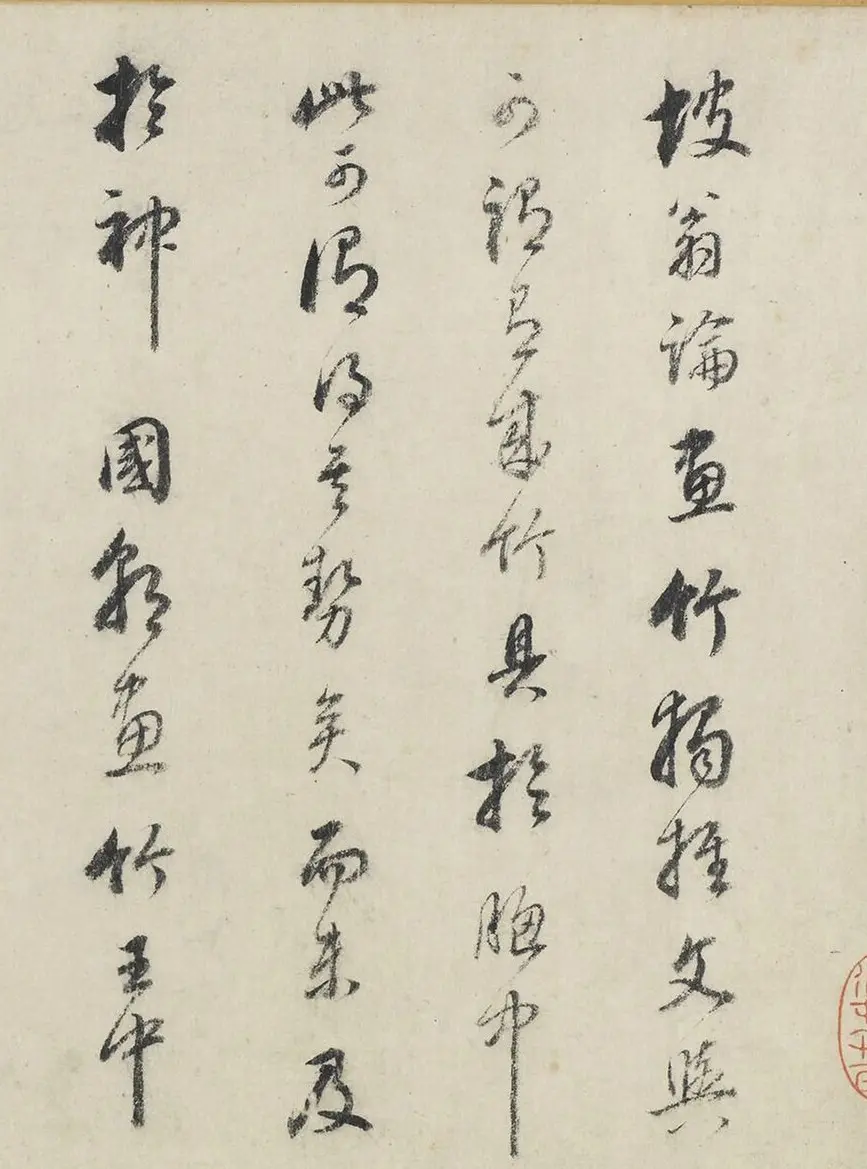 坡翁論畫竹獨推文與
可謂有成竹具於胸中
此可謂得其勢矣而未及
於神國朝畫竹王中